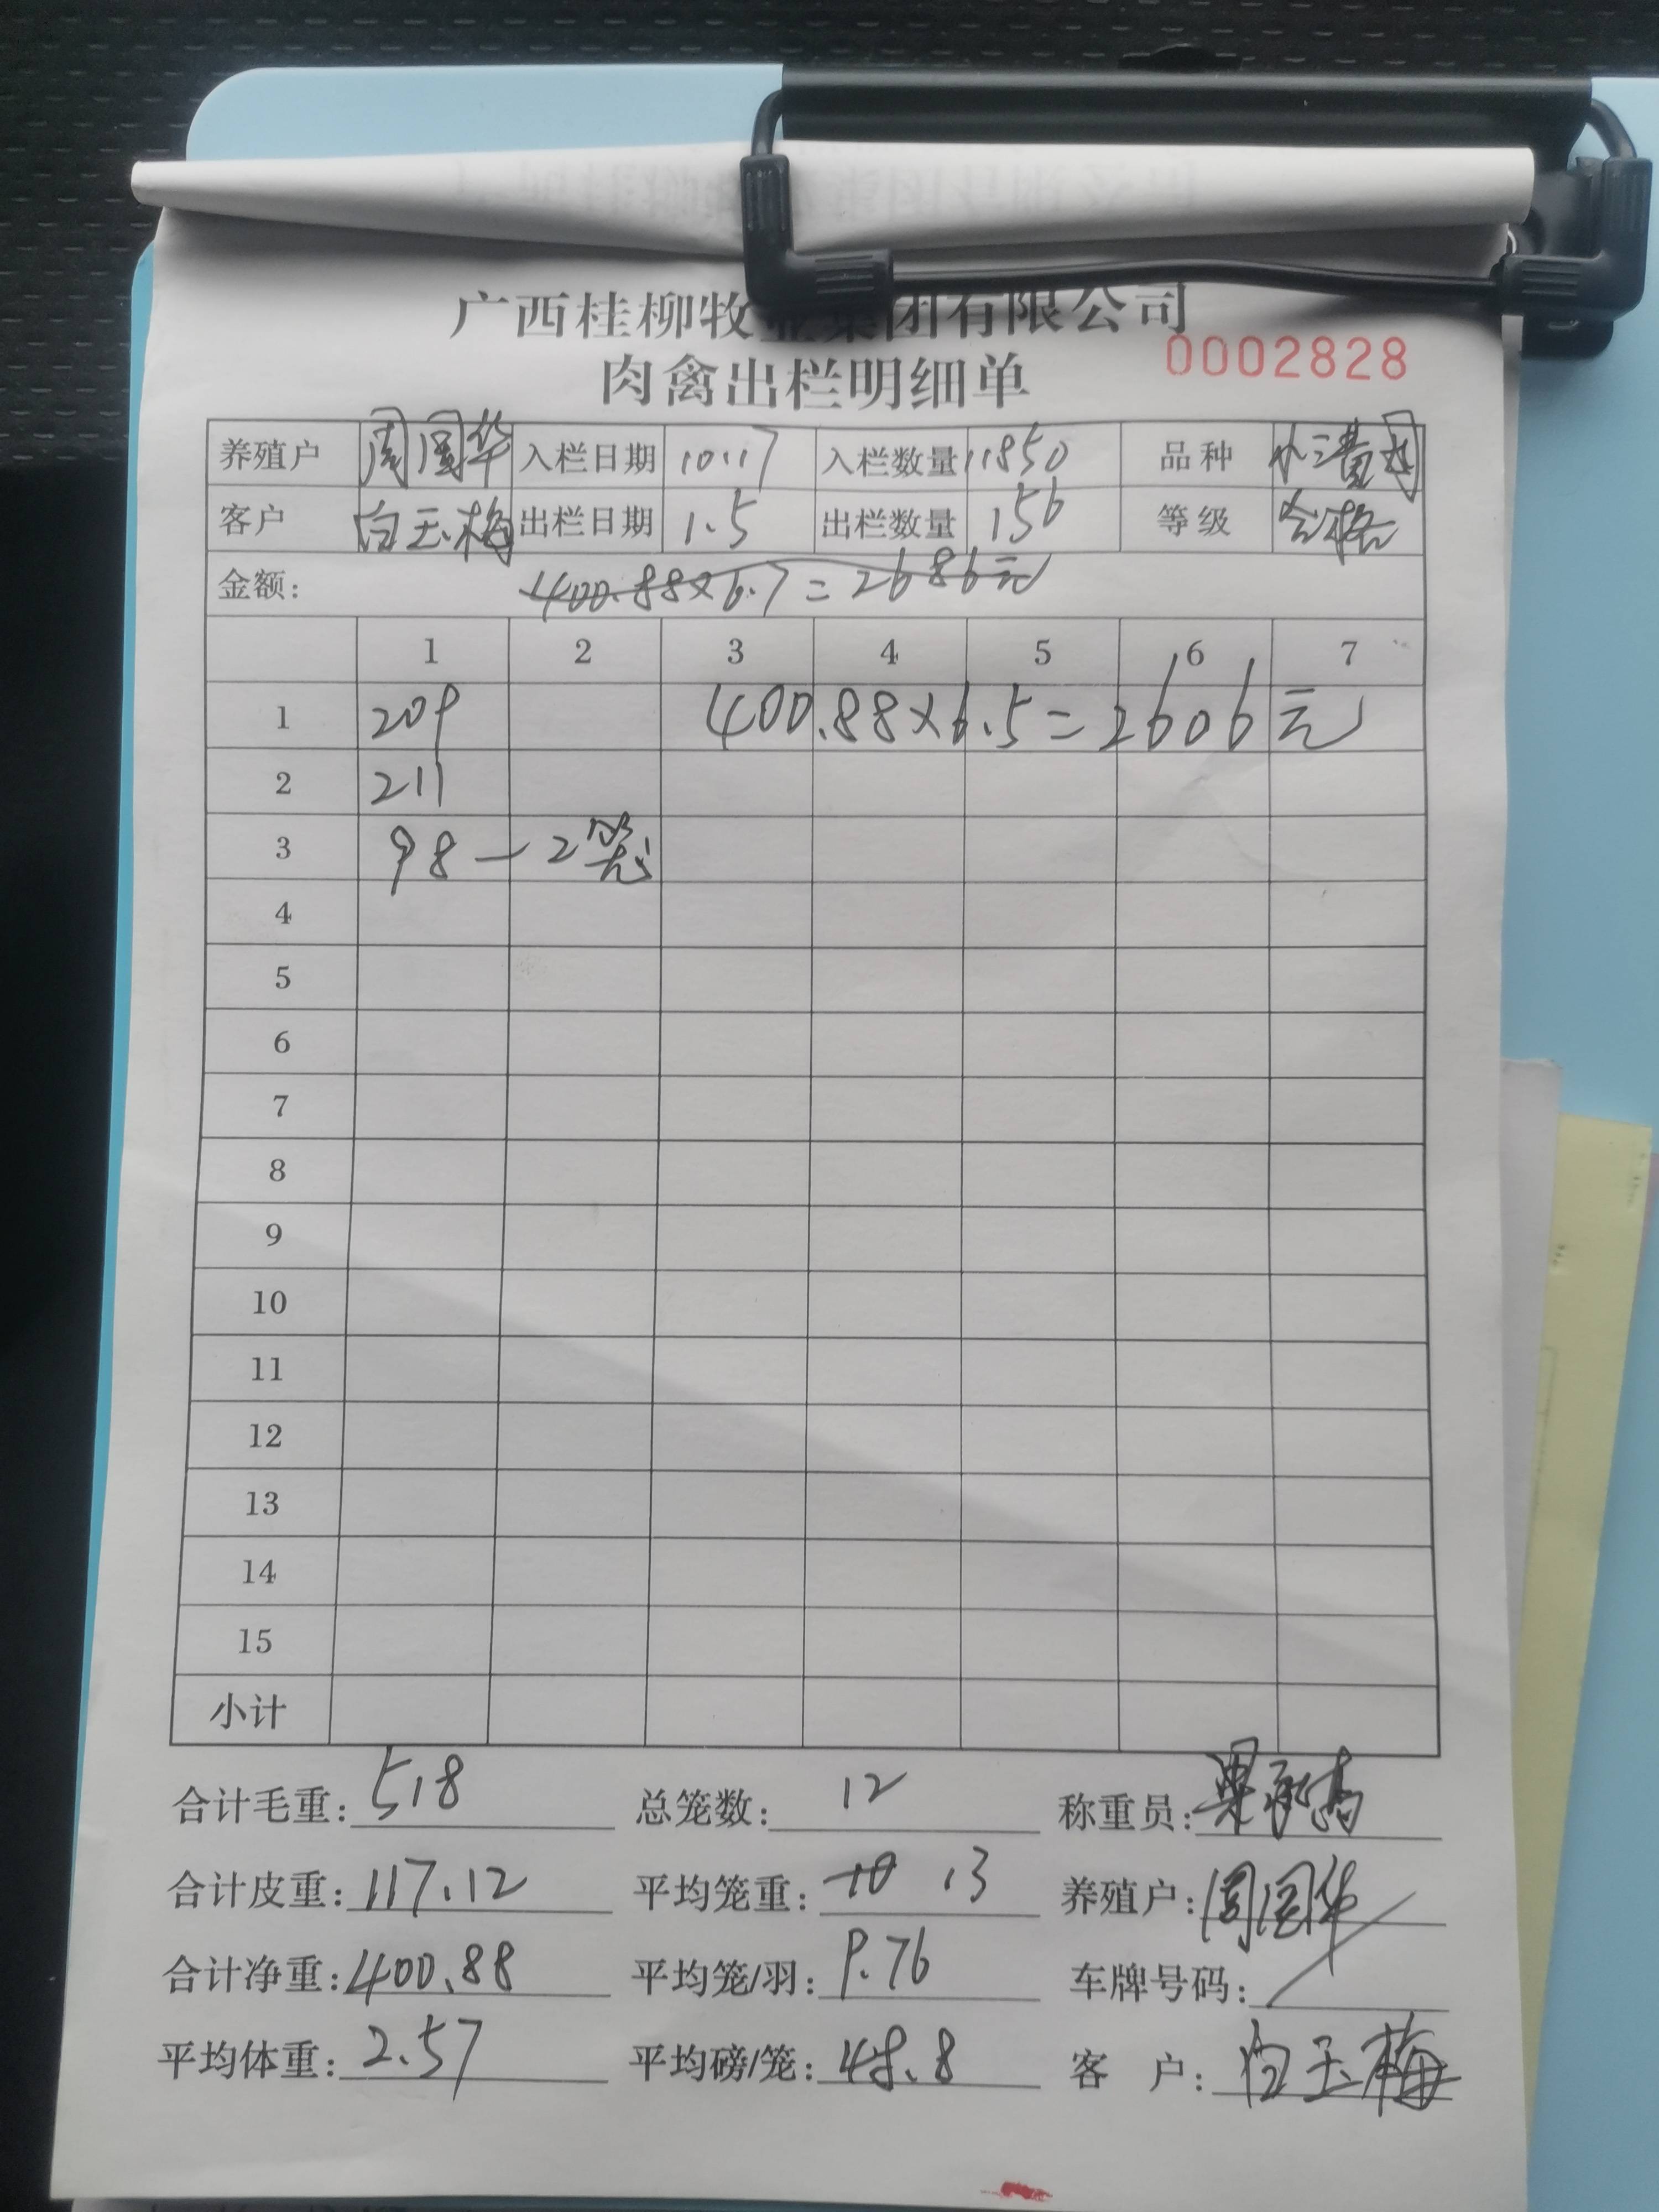 广西桂柳牧业集团有限公司
肉禽出栏明细单 0002828
养殖户 周国华 入栏日期 10.17 入栏数量 11850 品种
客户 白玉梅 出栏日期 1.5 出栏数量 156 等级 合格
金额: 400.88×6.7=2686元
1 2 3 4 5 6 7
1 209 400.88×6.5=2606元
2 211
3 98—2笼
4
5
6
7
8
9
10
11
12
13
14
15
小计
合计毛重: 518 总笼数: 12 称重员:
合计皮重: 117.12 平均笼重: 10 13 养殖户: 周国华
合计净重: 400.88 平均笼/羽: 9.76 车牌号码:
平均体重: 2.57 平均磅/笼: 48.8 客户: 白玉梅